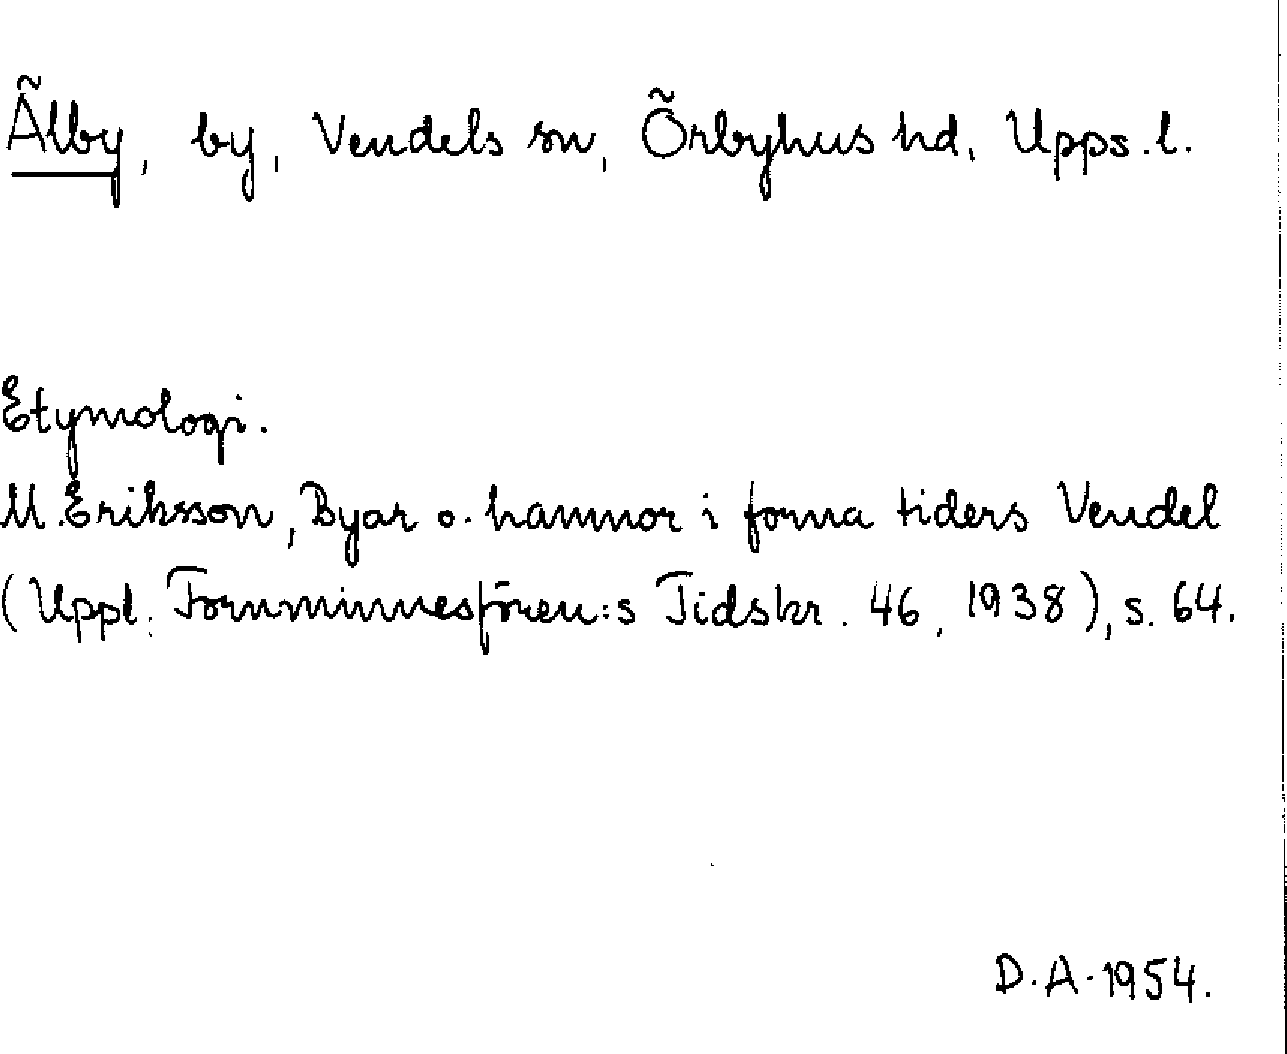 Älby, by, Vendels sn, Örbyhus hd, Upps. l.
Etymologi.
M. Eriksson, Byar o. hamnor i forna tiders Vendel
(Uppl. Fornminnesfören:s Tidskr. 46, 1938), s. 64.
D. A. 1954.